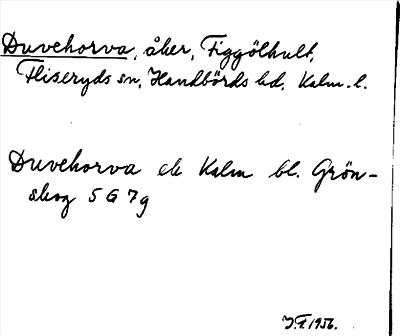 Duvehorva, åker, Figgölhult,
Fliseryds sn, Handbörds hd, Kalm. l.
Duvehorva ek Kalm bl. Grön-
skog 5 G 7g
J.F. 1956.